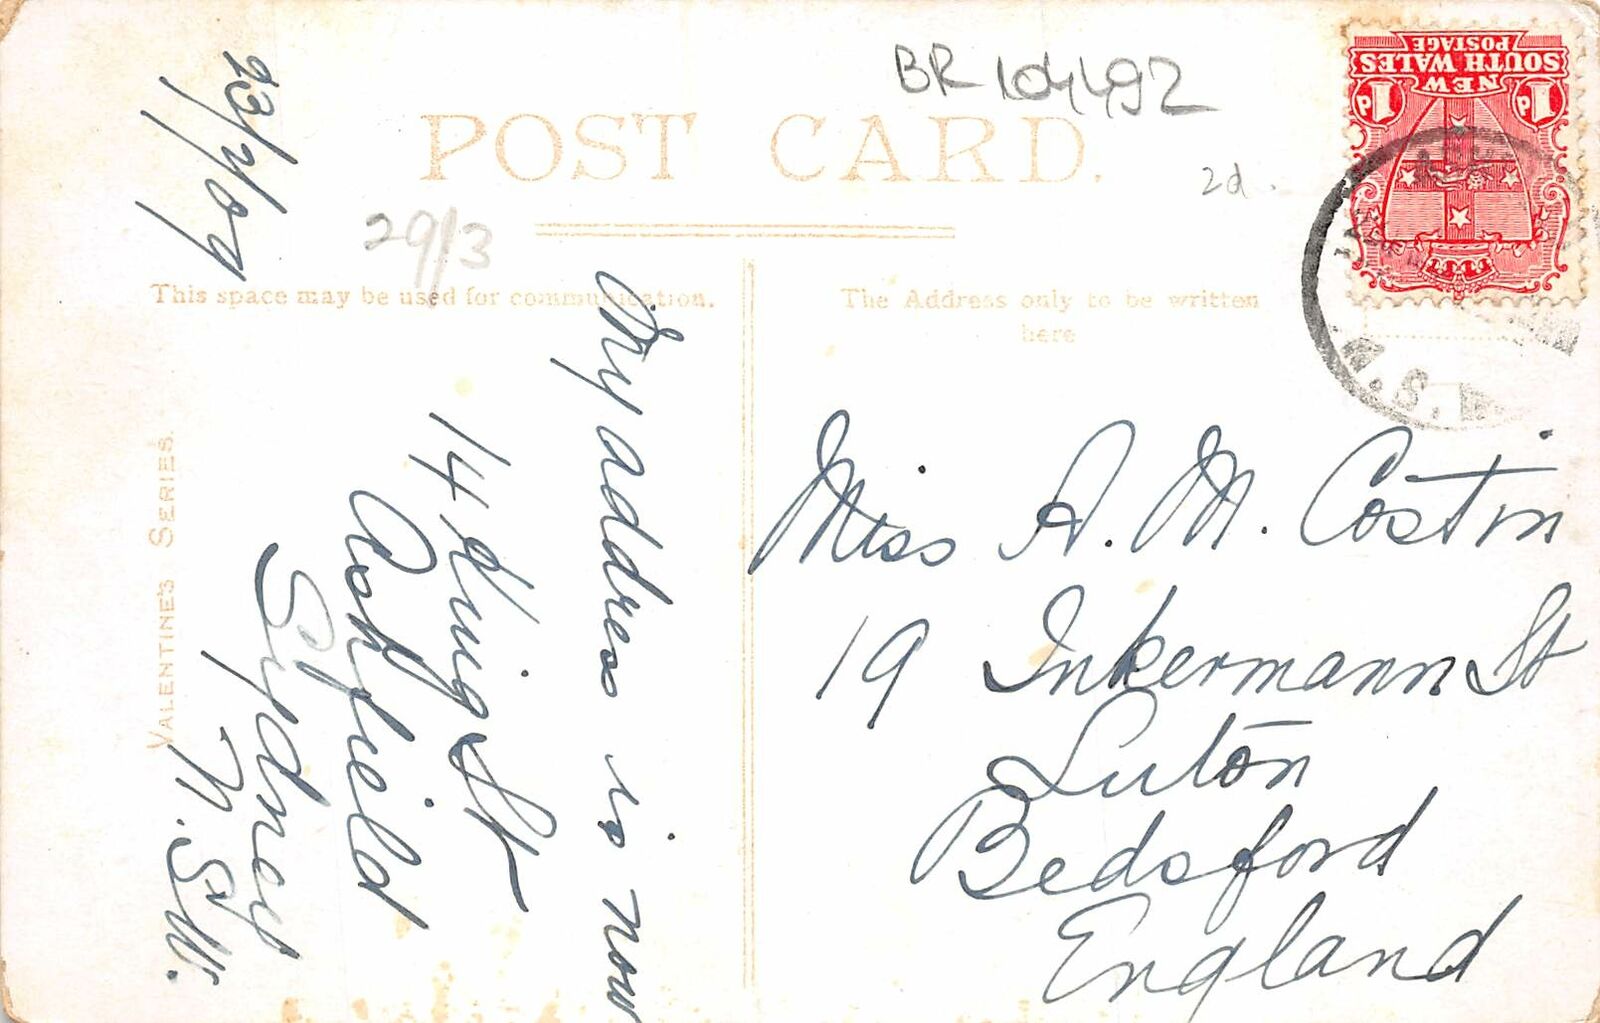 BR 104492
POST CARD.
2d.
29/3
23/2/09
This space may be used for communication.
The Address only to be written
here
VALENTINE'S SERIES.
My address is now
14 King St
Ashfield
Sydney
N.S.W.
Miss A. M. Costin
19 Inkermann St
Luton
Bedsford
England
NEW
SOUTH WALES
POSTAGE
1d
1d
N.S.W